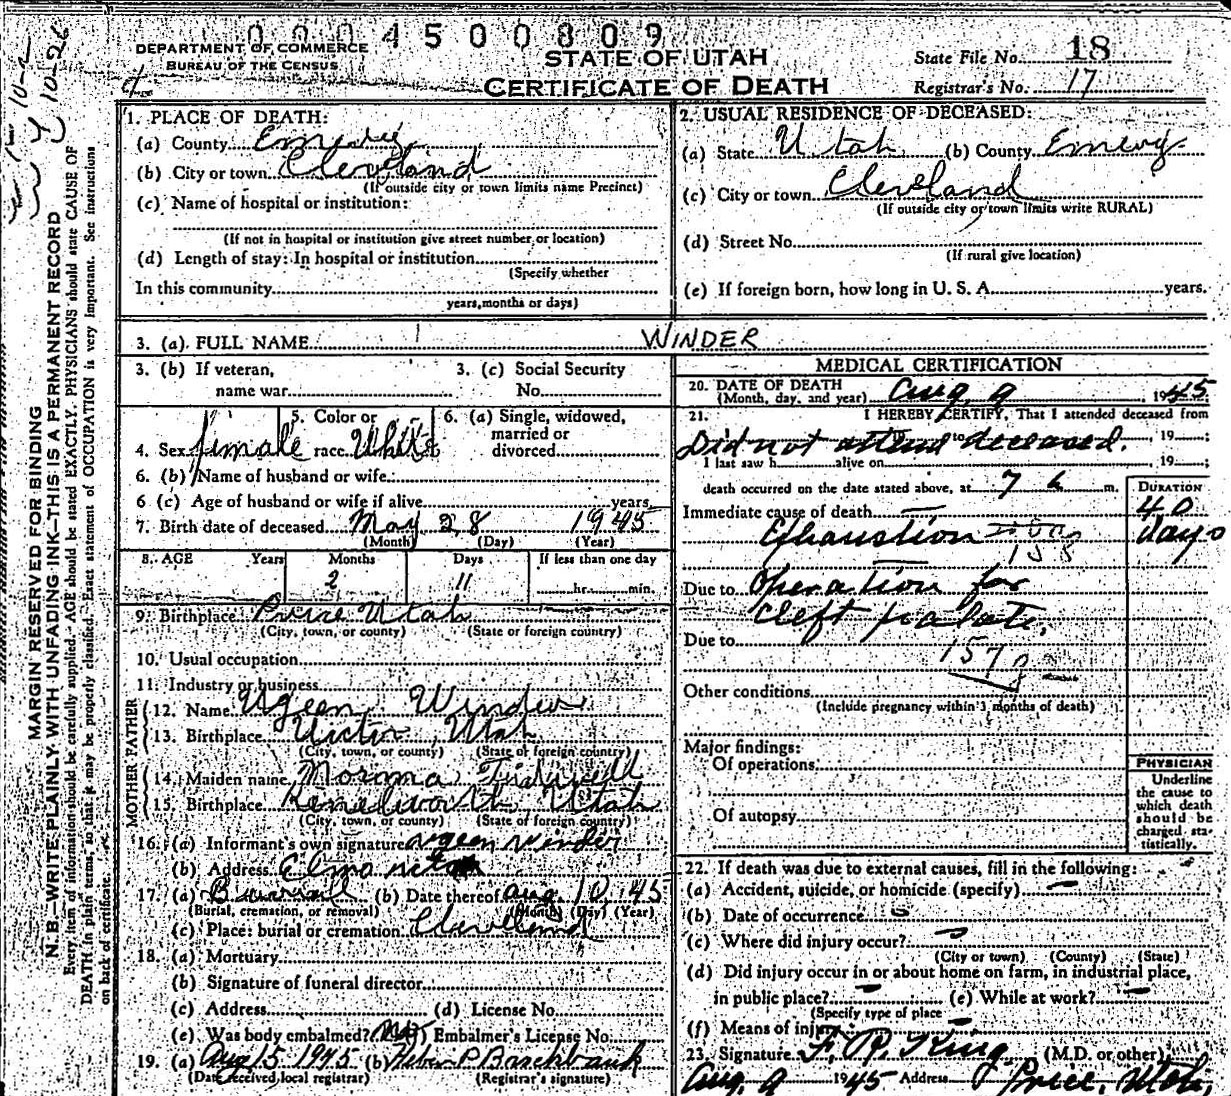 0004500809
DEPARTMENT OF COMMERCE
BUREAU OF THE CENSUS
STATE OF UTAH
CERTIFICATE OF DEATH
State File No. 18
Registrar's No. 17
MARGIN RESERVED FOR BINDING
N. B.—WRITE PLAINLY WITH UNFADING INK—THIS IS A PERMANENT RECORD
Every item of information should be carefully supplied. AGE should be stated EXACTLY. PHYSICIANS should state CAUSE OF
DEATH in plain terms, so that it may be properly classified. Exact statement of OCCUPATION is very important. See instructions
on back of certificate.
1. PLACE OF DEATH:
(a) County Emery
(b) City or town Cleveland
(If outside city or town limits name Precinct)
(c) Name of hospital or institution:
(If not in hospital or institution give street number or location)
(d) Length of stay: In hospital or institution
(Specify whether
In this community
years, months or days)
2. USUAL RESIDENCE OF DECEASED:
(a) State Utah (b) County Emery
(c) City or town Cleveland
(If outside city or town limits write RURAL)
(d) Street No.
(If rural give location)
(e) If foreign born, how long in U. S. A. years.
3. (a) FULL NAME WINDER
3. (b) If veteran,
name war
3. (c) Social Security
No.
4. Sex female
5. Color or
race White
6. (a) Single, widowed,
married or
divorced
6. (b) Name of husband or wife
6 (c) Age of husband or wife if alive years
7. Birth date of deceased May 28 1945
(Month) (Day) (Year)
8. AGE Years Months Days If less than one day
2 11 hr. min.
9. Birthplace Price Utah
(City, town, or county) (State or foreign country)
10. Usual occupation
11. Industry or business
FATHER
12. Name Ugeen Winder
13. Birthplace Victor, Utah
(City, town, or county) (State or foreign country)
MOTHER
14. Maiden name Norma Tidwell
15. Birthplace Kenilworth, Utah
(City, town, or county) (State or foreign country)
16. (a) Informant's own signature Ugeen Winder
(b) Address Elmo
17. (a) Burial (b) Date thereof Aug. 10, 45
(Burial, cremation, or removal) (Month) (Day) (Year)
(c) Place: burial or cremation Cleveland
18. (a) Mortuary
(b) Signature of funeral director
(c) Address (d) License No.
(e) Was body embalmed? No, Embalmer's License No.
19. (a) Aug 15 1945 (b)
(Date received local registrar) (Registrar's signature)
MEDICAL CERTIFICATION
20. DATE OF DEATH
(Month, day, and year) Aug. 9 1945
21. I HEREBY CERTIFY, That I attended deceased from
Did not attend to deceased. , 19 ;
I last saw h alive on , 19 ;
death occurred on the date stated above, at 7 m.
DURATION
Immediate cause of death 40
Exhaustion days
Due to Operation for
cleft palate.
Due to
Other conditions
(Include pregnancy within 3 months of death)
Major findings:
Of operations
Of autopsy
PHYSICIAN
Underline
the cause to
which death
should be
charged sta-
tistically.
22. If death was due to external causes, fill in the following:
(a) Accident, suicide, or homicide (specify)
(b) Date of occurrence
(c) Where did injury occur?
(City or town) (County) (State)
(d) Did injury occur in or about home on farm, in industrial place,
in public place? (e) While at work?
(Specify type of place
(f) Means of injury
23. Signature F. R. King (M.D. or other)
Aug. 9 1945 Address Price, Utah,